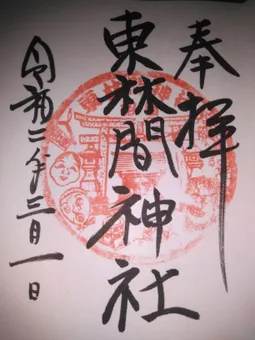 奉拝
東林間神社
令和二年三月一日